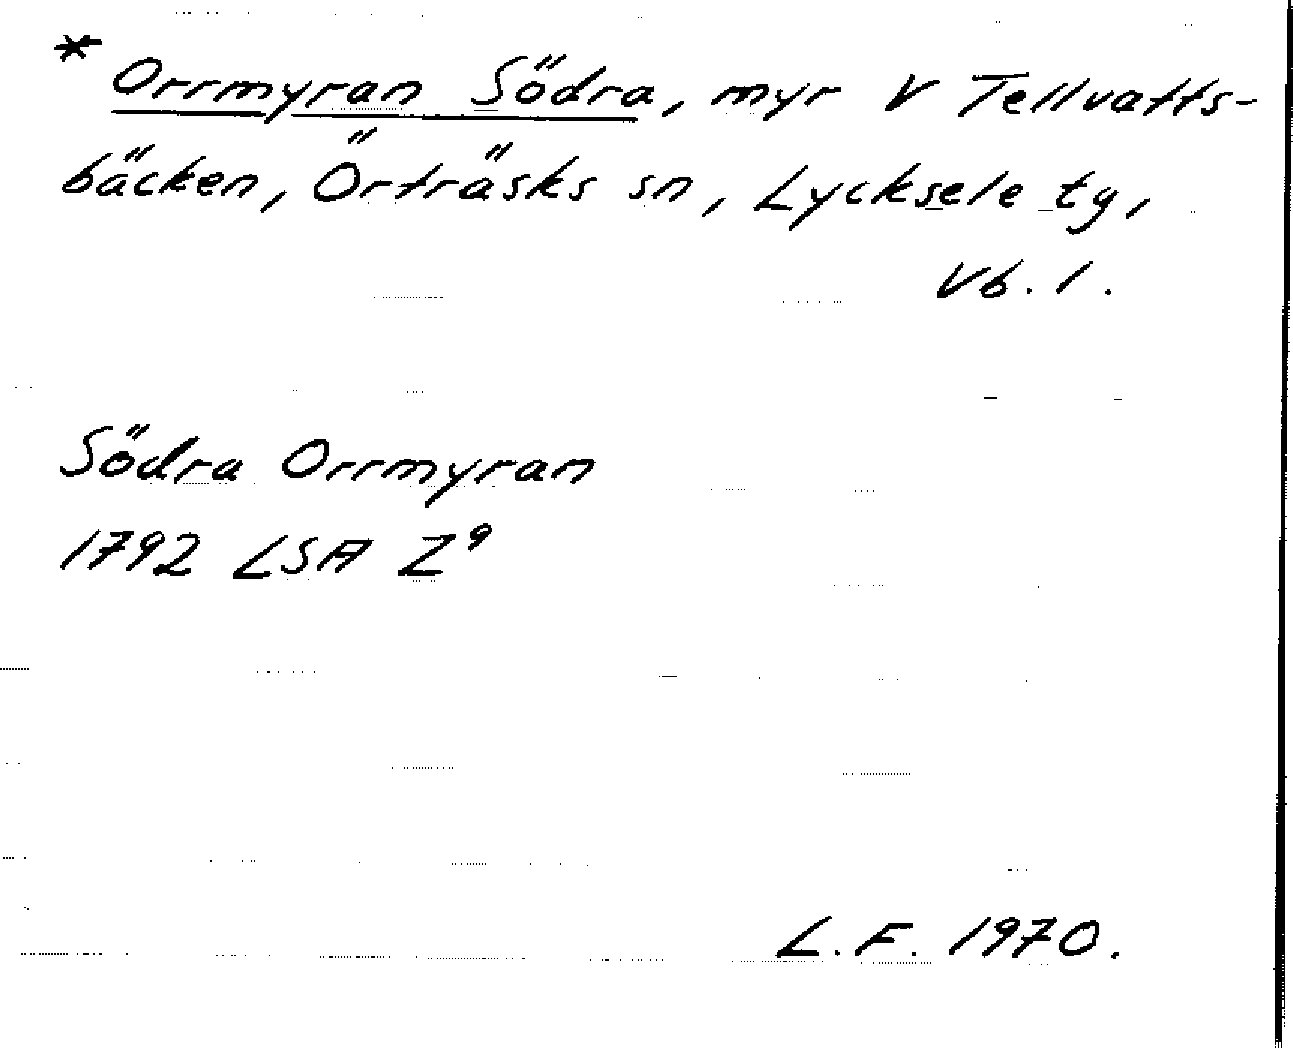 * Orrmyran Södra, myr V Tellvatts-
bäcken, Örträsks sn, Lycksele tg,
Vb. l.
Södra Orrmyran
1792 LSA Z⁹
L.F. 1970.